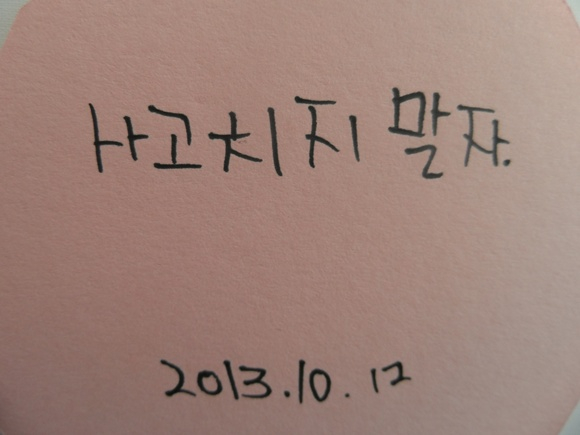 사고치지 말자.
2013.10.12